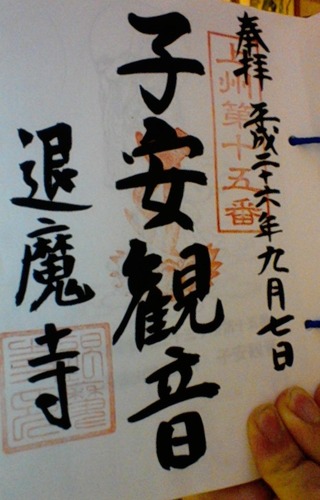 奉拝 平成二十六年九月七日
上州第十五番
子安観音
退魔寺